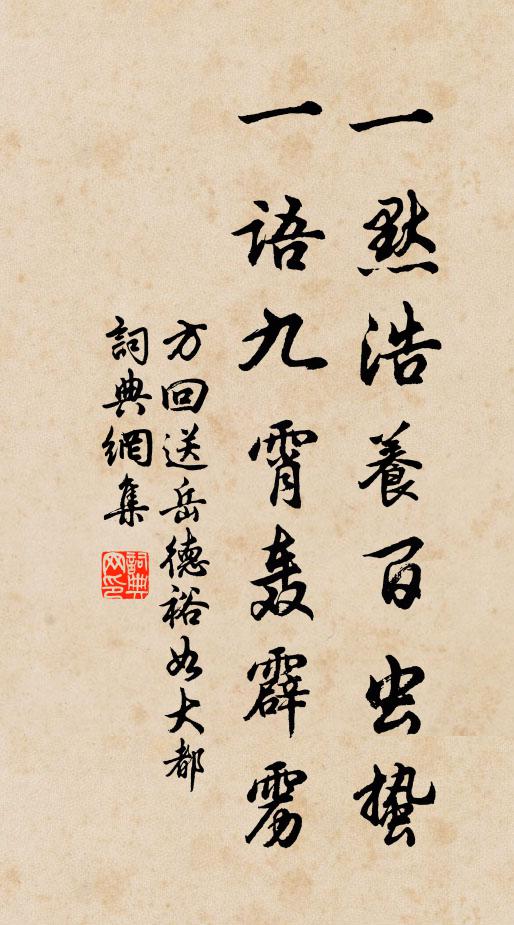 一默浩養百虫蟄
一語九霄轰霹雳
方回送岳德裕如大都
詞典網集
詞典網印